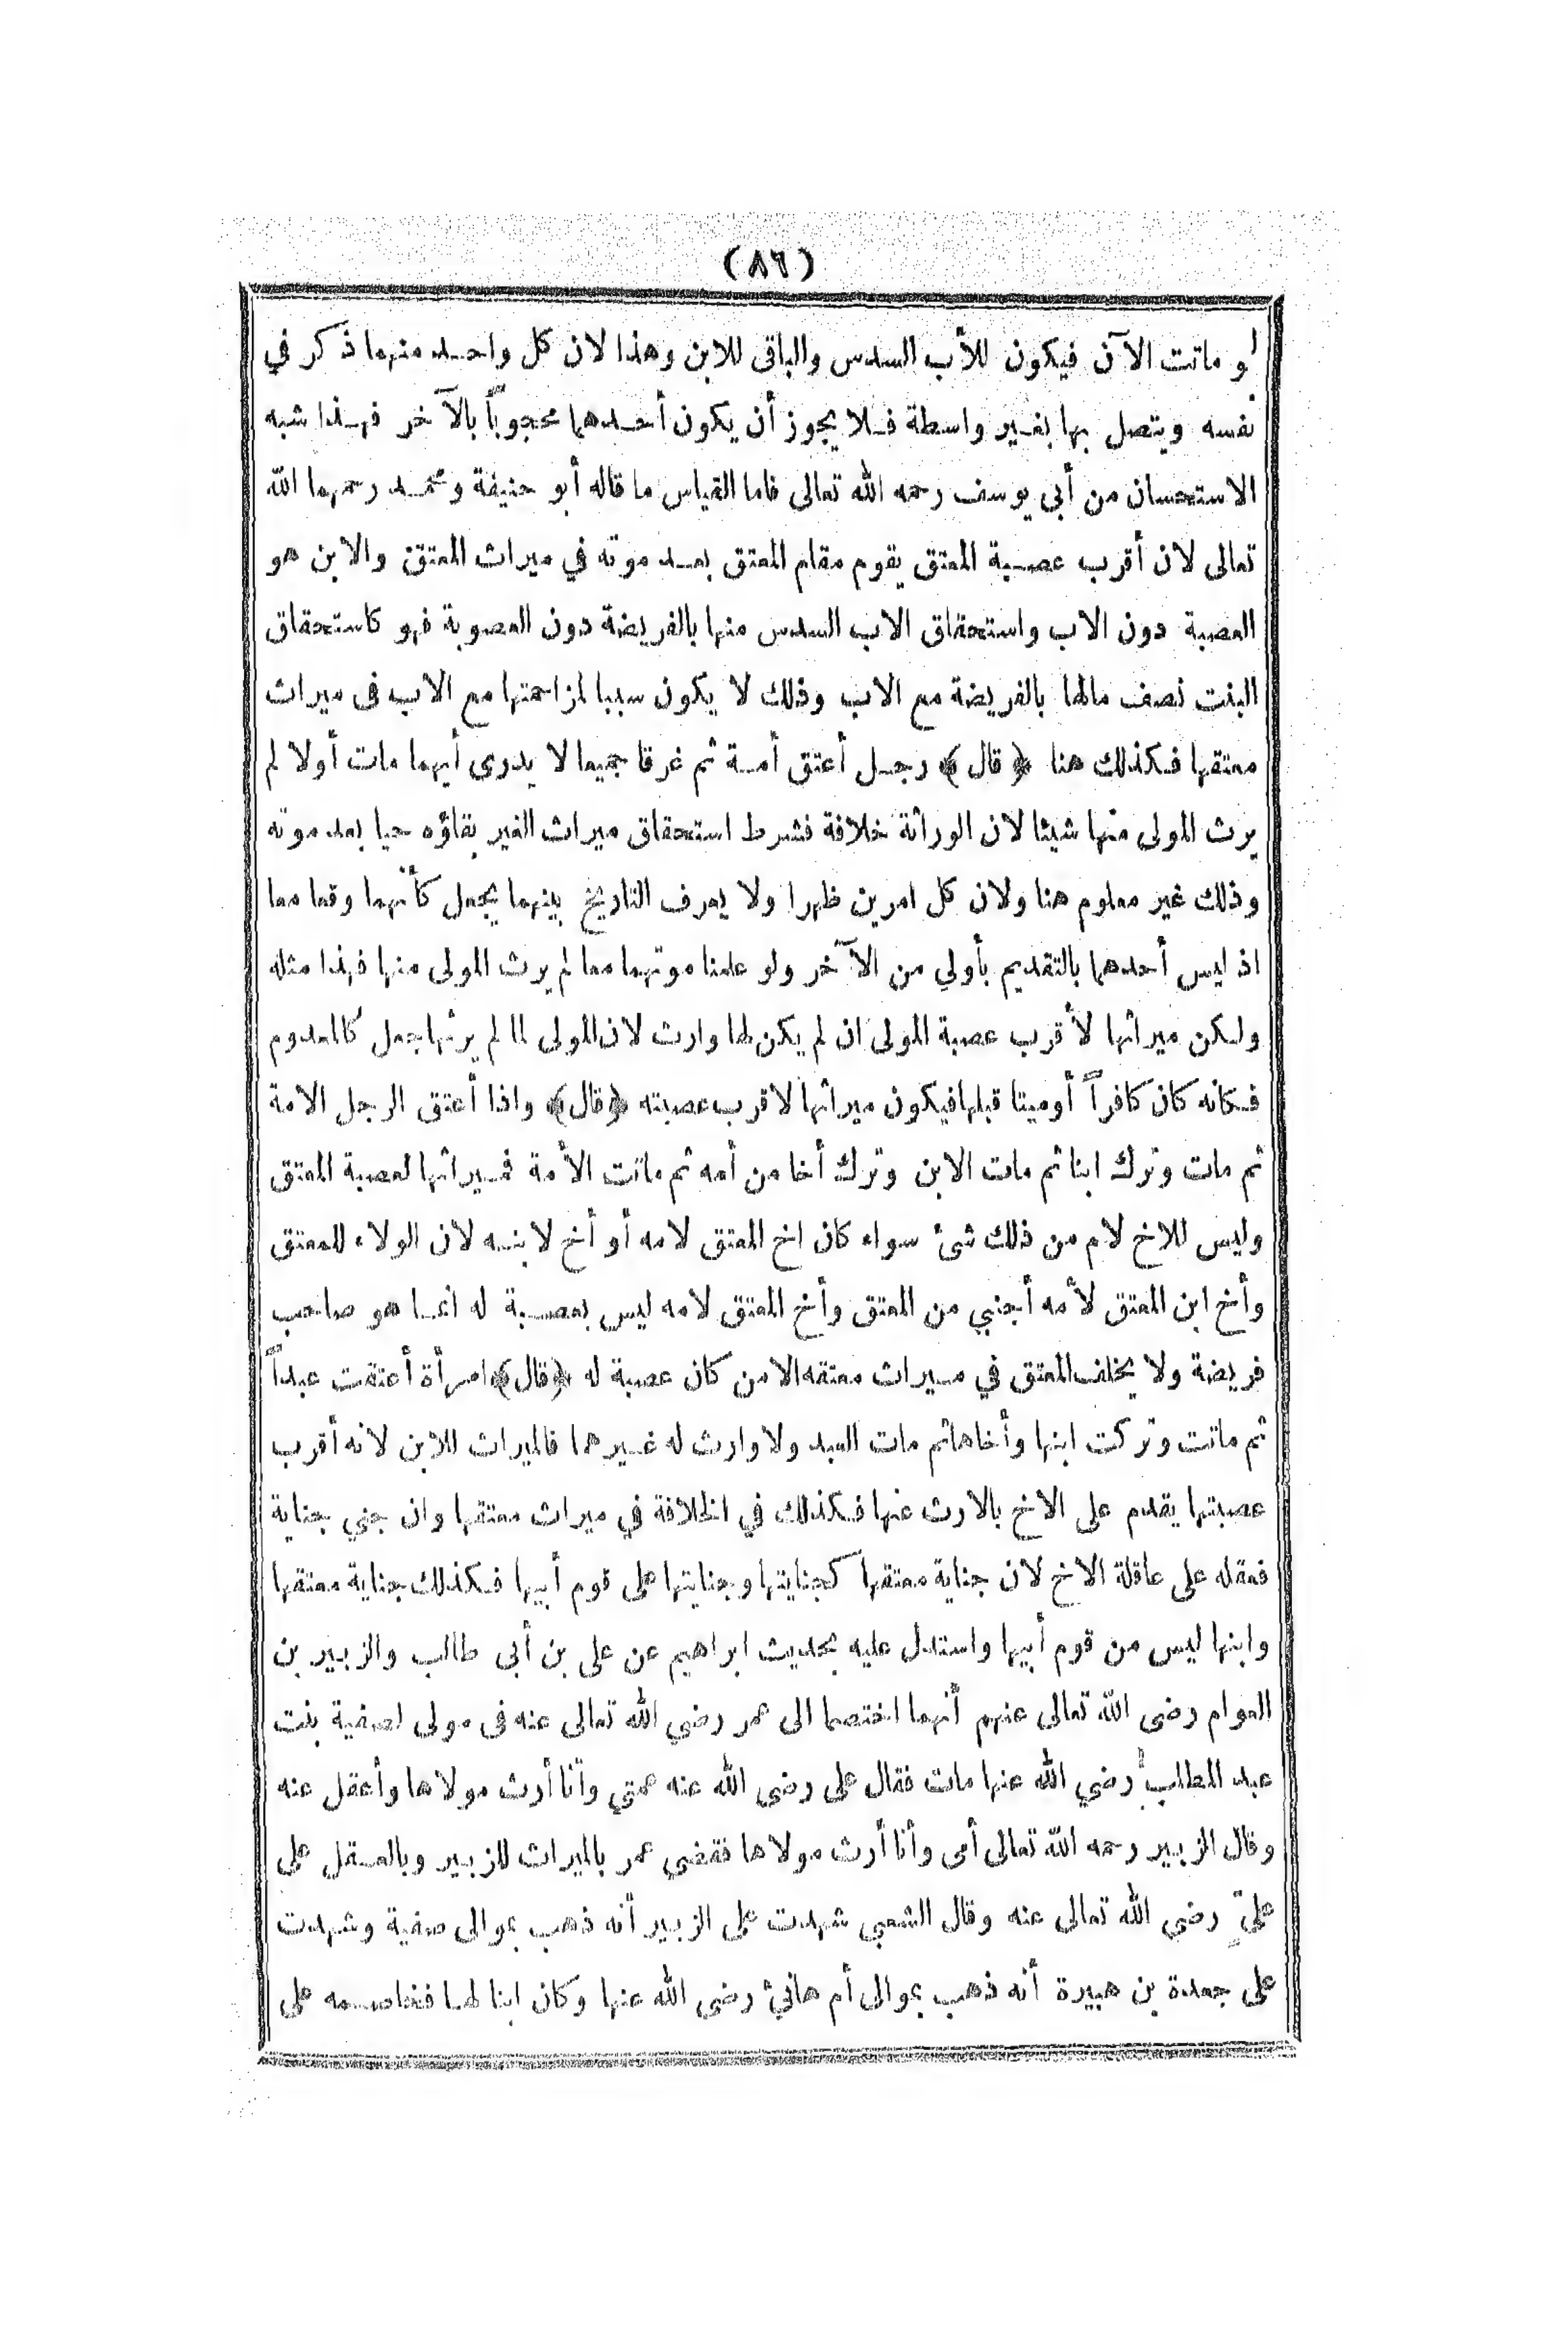 (٨٦)
لو ماتت الآن فيكون للأب السدس والباقى للابن وهذا لان كل واحد منهما ذكر في
نفسه ويتصل بها بغير واسطة فلا يجوز أن يكون أحدهما محجوباً بالآخر فهذا شبه
الاستحسان من أبي يوسف رحمه الله تعالى فاما القياس ما قاله أبو حنيفة ومحمد رحمهما الله
تعالى لان أقرب عصبة المعتق يقوم مقام المعتق بعد موته في ميراث المعتق والابن هو
العصبة دون الاب واستحقاق الاب السدس منها بالفريضة دون العصوبة فهو كاستحقاق
البنت نصف مالها بالفريضة مع الاب وذلك لا يكون سببا لمزاحمتها مع الاب فى ميراث
معتقها فكذلك هنا ﴿ قال ﴾ رجل أعتق أمة ثم غرقا جميعا لا يدرى أيهما مات أولا لم
يرث المولى منها شيئا لان الوراثة خلافة فشرط استحقاق ميراث الغير بقاؤه حيا بعد موته
وذلك غير معلوم هنا ولان كل امرين ظهرا ولا يعرف التاريخ بينهما يجعل كأنهما وقعا معا
اذ ليس أحدهما بالتقديم بأولي من الآخر ولو علمنا موتهما معا لم يرث المولى منها فهذا مثله
ولكن ميراثها لأقرب عصبة المولى ان لم يكن لها وارث لان المولى لما لم يرثها جعل كالمعدوم
فكانه كان كافراً أوميتا قبلها فيكون ميراثها لاقرب عصبته ﴿قال﴾ واذا أعتق الرجل الامة
ثم مات وترك ابنا ثم مات الابن وترك أخا من أمه ثم ماتت الأمة فميراثها لعصبة المعتق
وليس للاخ لام من ذلك شئ سواء كان اخ المعتق لامه أو أخ لابنه لان الولاء للمعتق
وأخ ابن المعتق لأمه أجنبي من المعتق وأخ المعتق لامه ليس بعصبة له انما هو صاحب
فريضة ولا يخلف المعتق في ميراث معتقه الا من كان عصبة له ﴿قال﴾ امرأة أعتقت عبداً
ثم ماتت وتركت ابنها وأخاها ثم مات العبد ولا وارث له غيرهما فالميراث للابن لانه أقرب
عصبتها يقدم على الاخ بالارث عنها فكذلك في الخلافة في ميراث معتقها وان جني جناية
فعقله على عاقلة الاخ لان جناية معتقها كجنايتها وجنايتها على قوم أبيها فكذلك جناية معتقها
وابنها ليس من قوم أبيها واستدل عليه بحديث ابراهيم عن على بن أبى طالب والزبير بن
العوام رضى الله تعالى عنهم أنهما اختصما الى عمر رضي الله تعالى عنه فى مولى لصفية بنت
عبد المطلب رضي الله عنها مات فقال على رضى الله عنه عمتي وأنا أرث مولاها وأعقل عنه
وقال الزبير رحمه الله تعالى أمى وأنا أرث مولاها فقضي عمر بالميراث للزبير وبالعقل على
علىّ رضى الله تعالى عنه وقال الشعبي شهدت على الزبير أنه ذهب بموالى صفية وشهدت
على جعدة بن هبيرة أنه ذهب بموالى أم هانئ رضى الله عنها وكان ابنا لها فخاصمه على